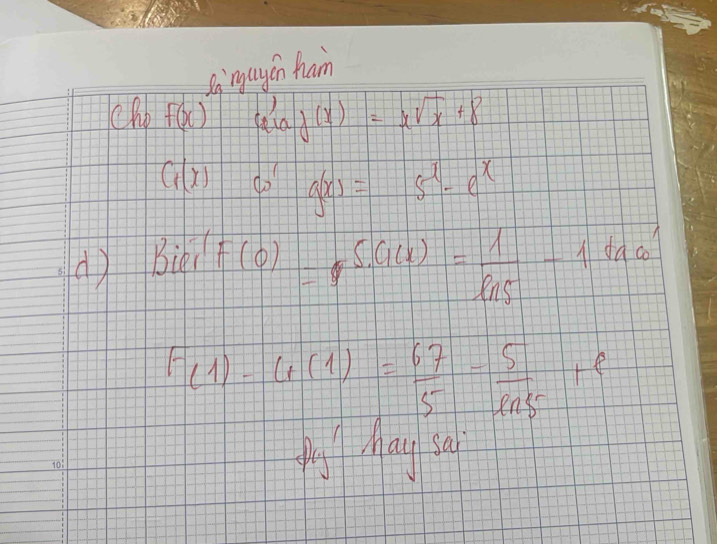 là nguyên hàm
Cho F(x) của f(x) = x√x + 8
G(x) có g(x) = 5^x - e^x
d) Biết F(0) = 5. G(x) = 1/ln5 - 1 ta có
F(1) - G(1) = 67/5 - 5/ln5 + e
hay sai
10